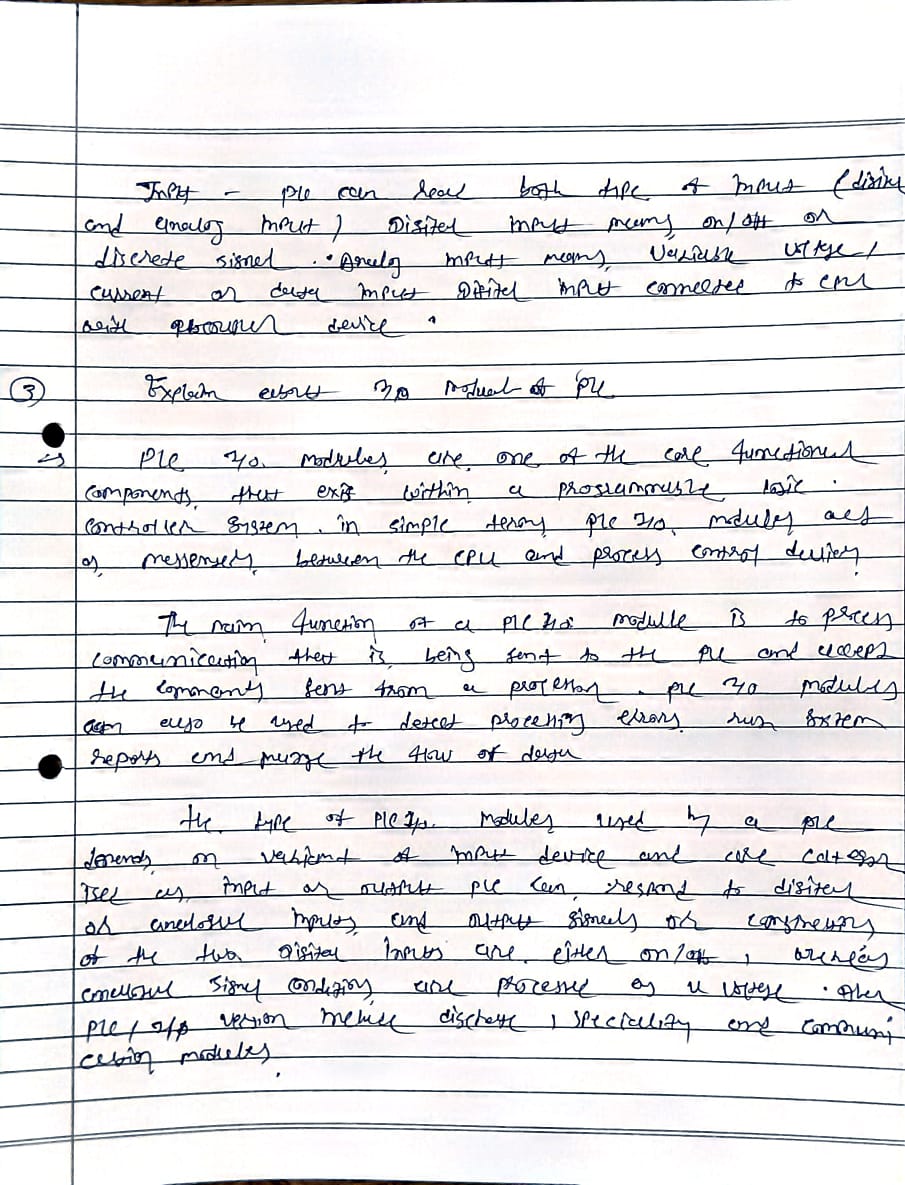 Input - plc can read both type of Input (digital
and analog Input) Digital Input means on/off or
discrete signal. Analog input means Variable voltage/
current or data Input Digital input connected to cpu
with optocoupler device.
③ Explain about I/O Module of PLC
PLC I/O modules are one of the core functional
components that exist within a programmable logic
controller system. in simple terms, plc I/O modules act
as messengers between the CPU and process control devices.
The main function of a PLC I/O module is to process
communication that is being sent to the PLC and accept
the comments sent from a processor. plc I/O modules
can also be used to detect processing errors, run system
reports and manage the flow of data
the type of PLC I/O modules used by a plc
depends on of input device and are categor
ised as input or output plc can respond to digital
or analogue inputs and output signals or
of the two digital inputs are either on/off, whereas
analogue signal conditions are processed as a voltage. other
PLC I/O version include discrete, speciality and communi
cation modules.